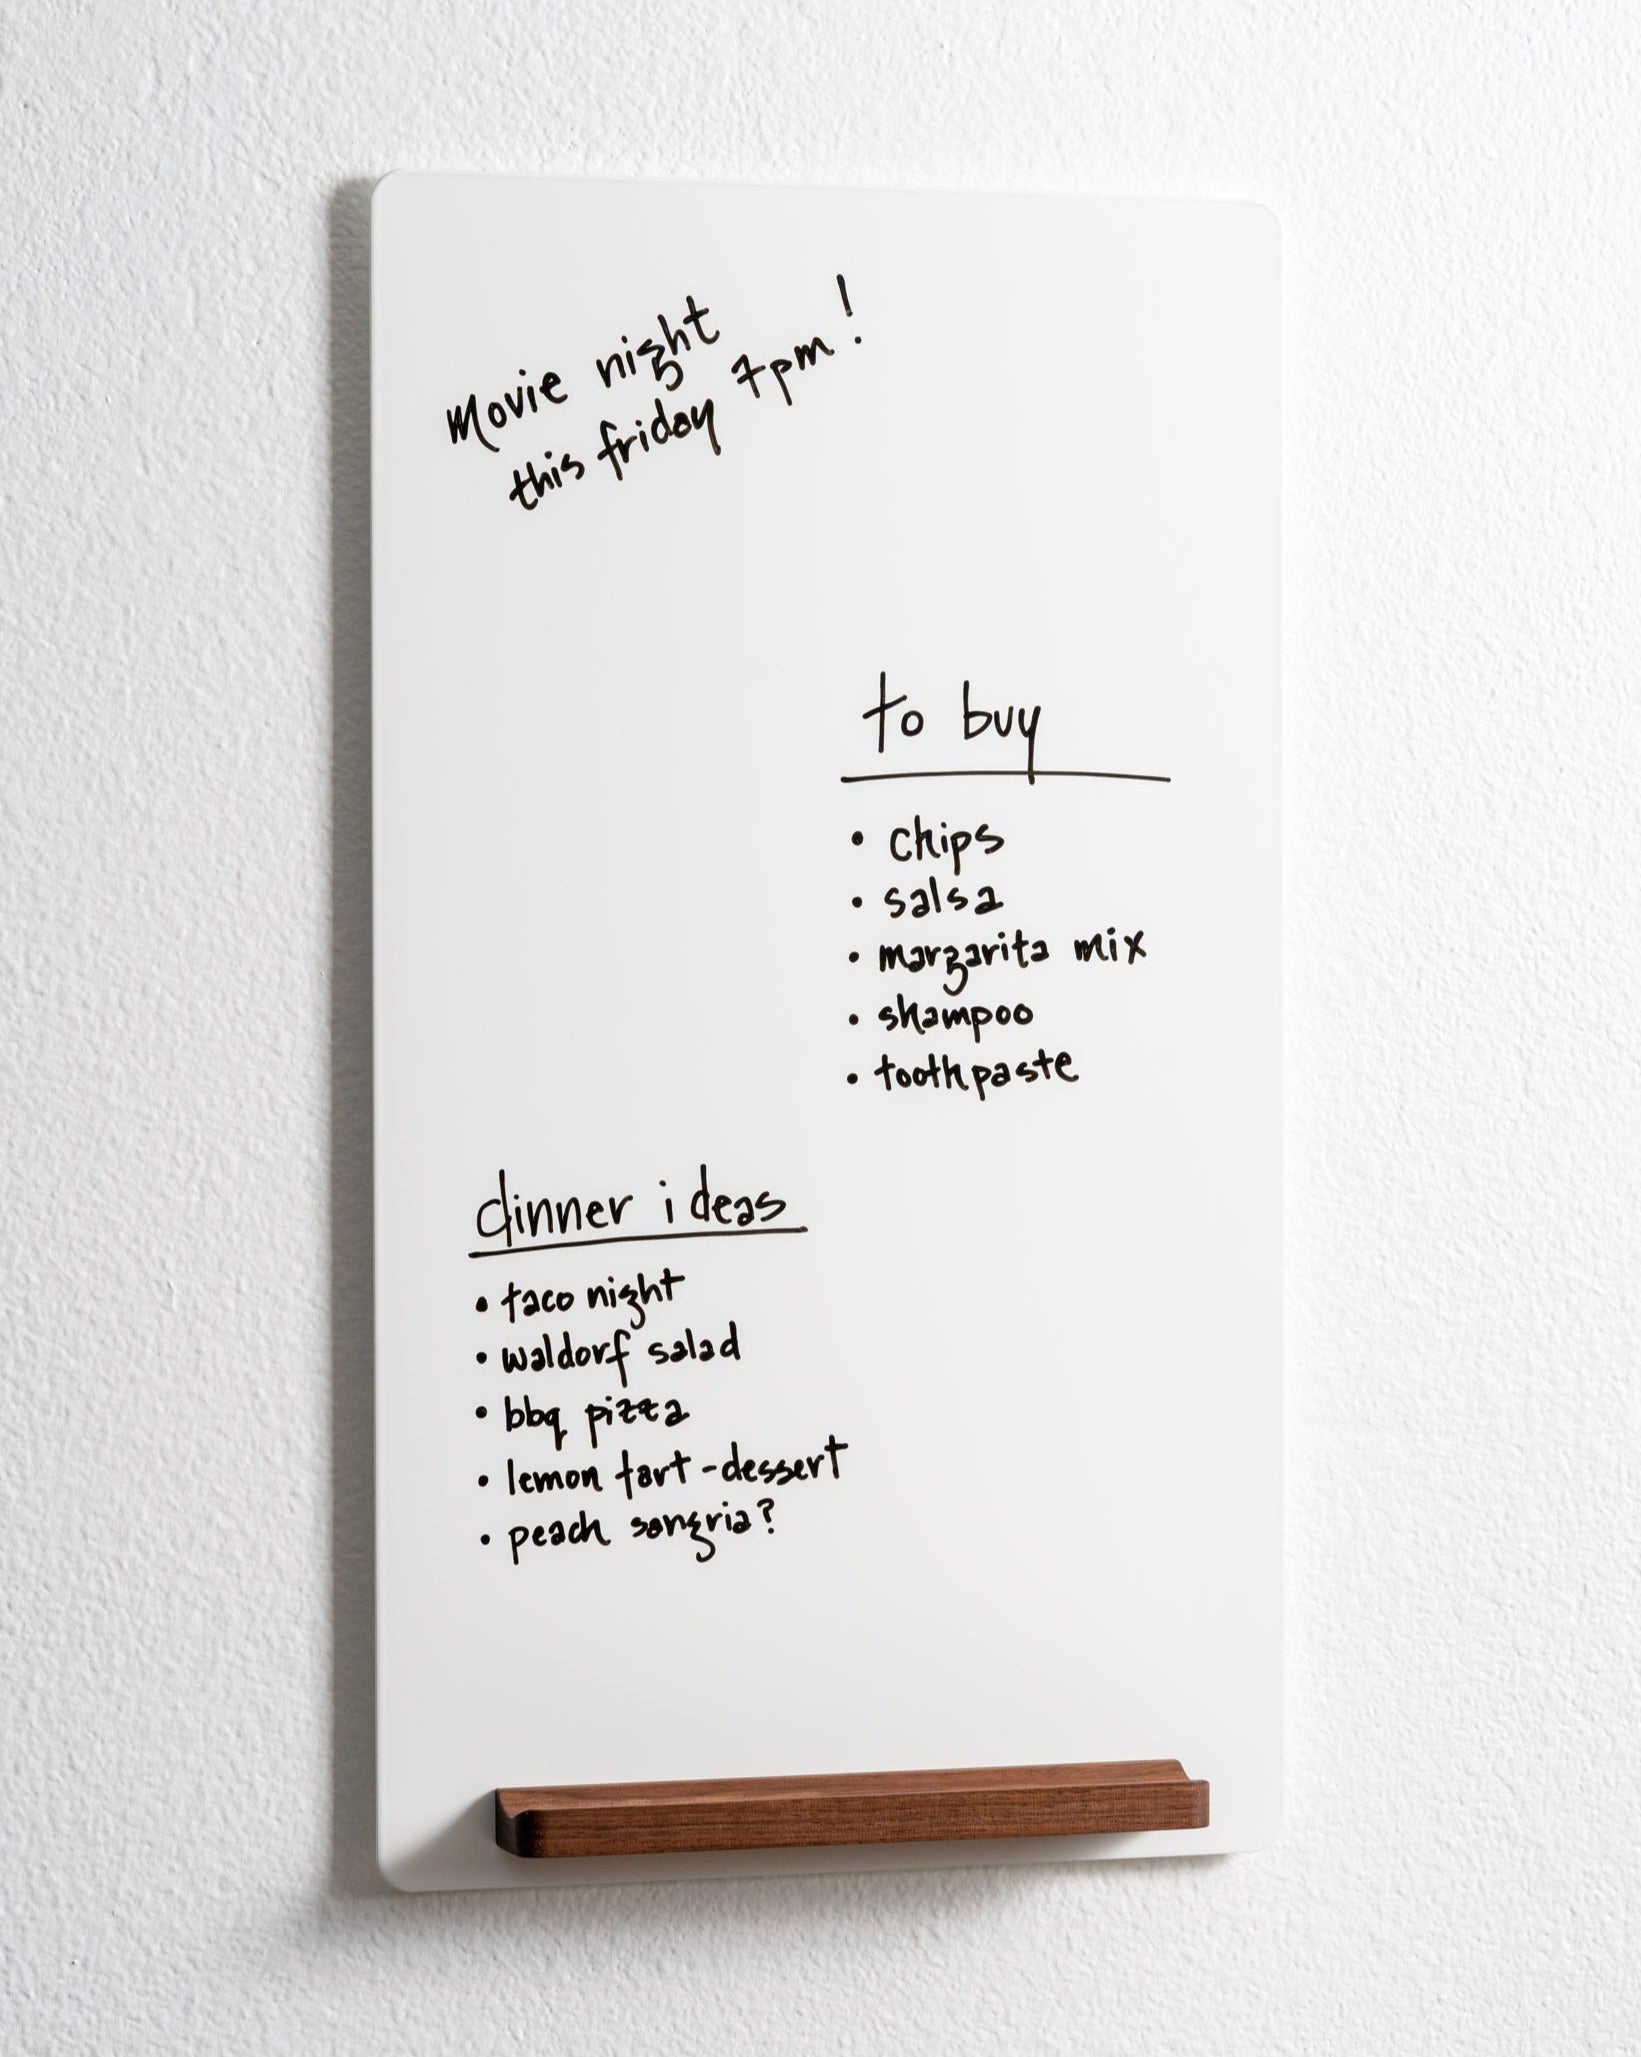 Movie night
this friday 7pm!
to buy
• chips
• salsa
• margarita mix
• shampoo
• toothpaste
dinner ideas
• taco night
• waldorf salad
• bbq pizza
• lemon tart - dessert
• peach sangria?